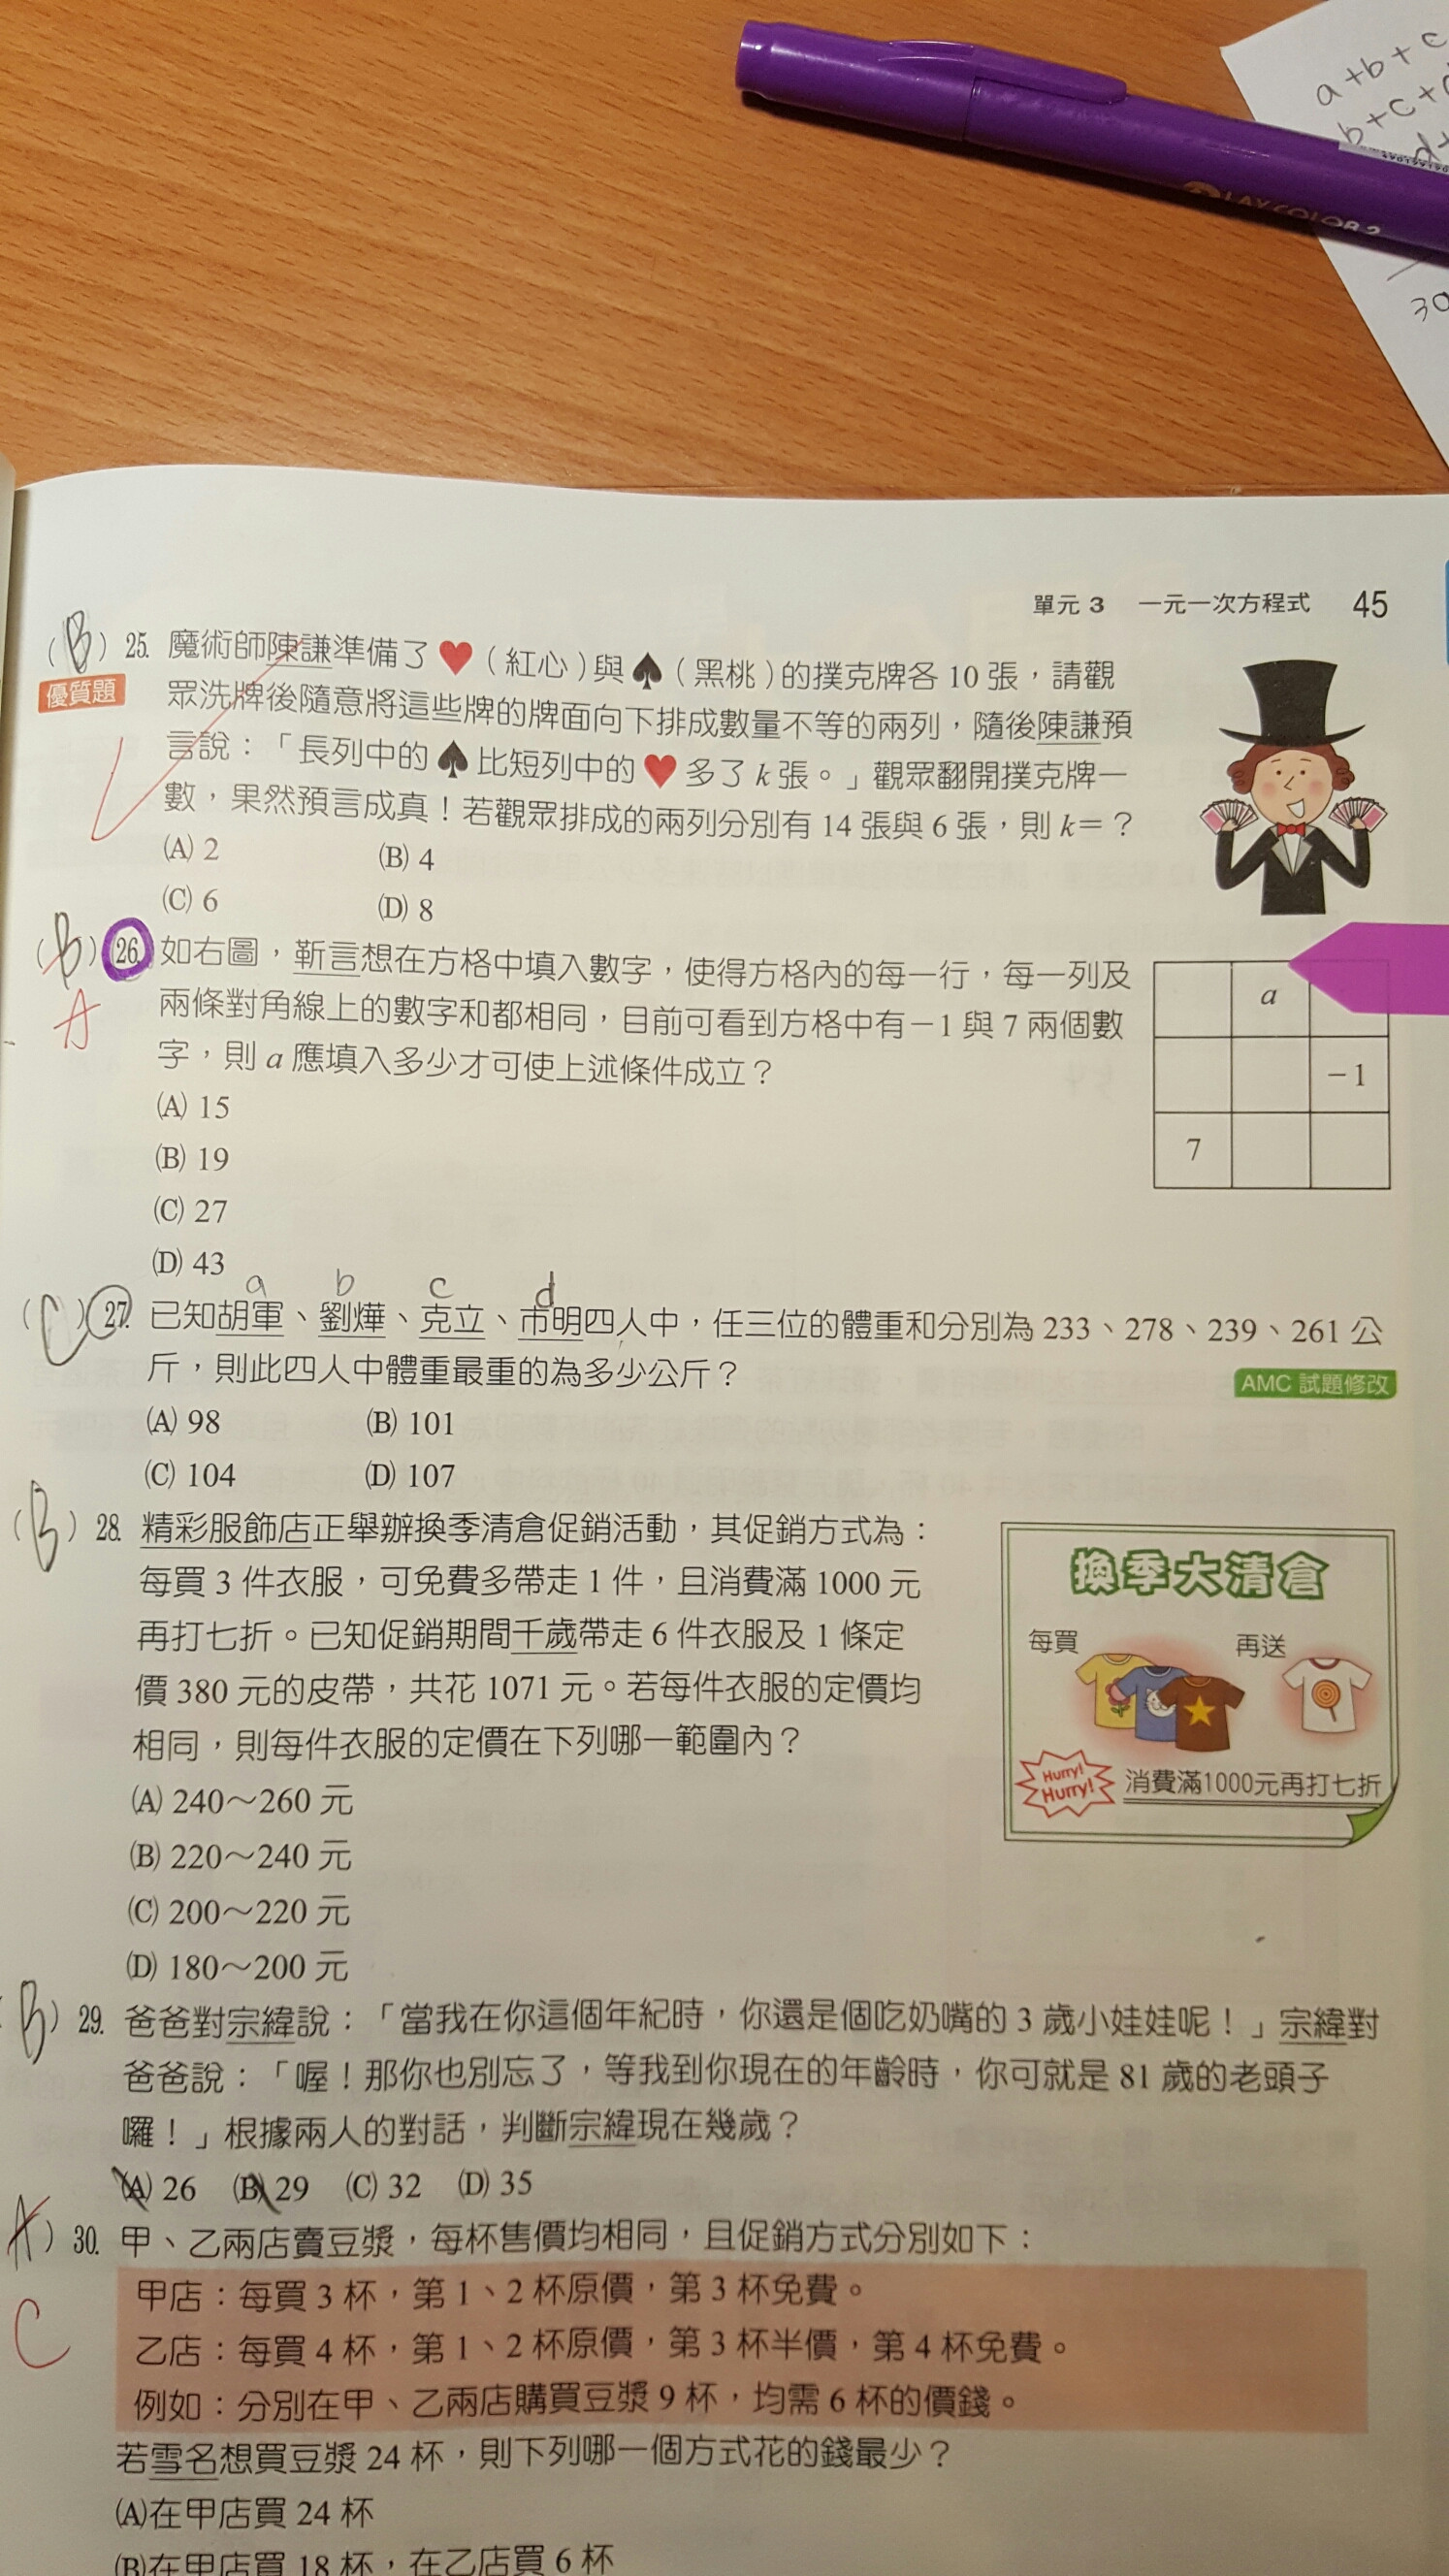 a+b+c
b+c+
PLAY COLOR 2
30
單元 3 一元一次方程式 45
(B) 25. 魔術師陳謙準備了♥(紅心)與♠(黑桃)的撲克牌各 10 張，請觀
優質題
眾洗牌後隨意將這些牌的牌面向下排成數量不等的兩列，隨後陳謙預
言說：「長列中的♠比短列中的♥多了 k 張。」觀眾翻開撲克牌一
數，果然預言成真！若觀眾排成的兩列分別有 14 張與 6 張，則 k=？
(A) 2 (B) 4
(C) 6 (D) 8
(B) 26. 如右圖，靳言想在方格中填入數字，使得方格內的每一行，每一列及
A
兩條對角線上的數字和都相同，目前可看到方格中有－1 與 7 兩個數
字，則 a 應填入多少才可使上述條件成立？
(A) 15
(B) 19
(C) 27
(D) 43
a
－1
7
a b c d
(C) 27. 已知胡軍、劉燁、克立、市明四人中，任三位的體重和分別為 233、278、239、261 公
斤，則此四人中體重最重的為多少公斤？
AMC 試題修改
(A) 98 (B) 101
(C) 104 (D) 107
(B) 28. 精彩服飾店正舉辦換季清倉促銷活動，其促銷方式為：
每買 3 件衣服，可免費多帶走 1 件，且消費滿 1000 元
再打七折。已知促銷期間千歲帶走 6 件衣服及 1 條定
價 380 元的皮帶，共花 1071 元。若每件衣服的定價均
相同，則每件衣服的定價在下列哪一範圍內？
(A) 240～260 元
(B) 220～240 元
(C) 200～220 元
(D) 180～200 元
換季大清倉
每買 再送
Hurry!
Hurry!
消費滿1000元再打七折
(B) 29. 爸爸對宗緯說：「當我在你這個年紀時，你還是個吃奶嘴的 3 歲小娃娃呢！」宗緯對
爸爸說：「喔！那你也別忘了，等我到你現在的年齡時，你可就是 81 歲的老頭子
囉！」根據兩人的對話，判斷宗緯現在幾歲？
(A) 26 (B) 29 (C) 32 (D) 35
A) 30. 甲、乙兩店賣豆漿，每杯售價均相同，且促銷方式分別如下：
C
甲店：每買 3 杯，第 1、2 杯原價，第 3 杯免費。
乙店：每買 4 杯，第 1、2 杯原價，第 3 杯半價，第 4 杯免費。
例如：分別在甲、乙兩店購買豆漿 9 杯，均需 6 杯的價錢。
若雪名想買豆漿 24 杯，則下列哪一個方式花的錢最少？
(A)在甲店買 24 杯
(B)在甲店買 18 杯，在乙店買 6 杯